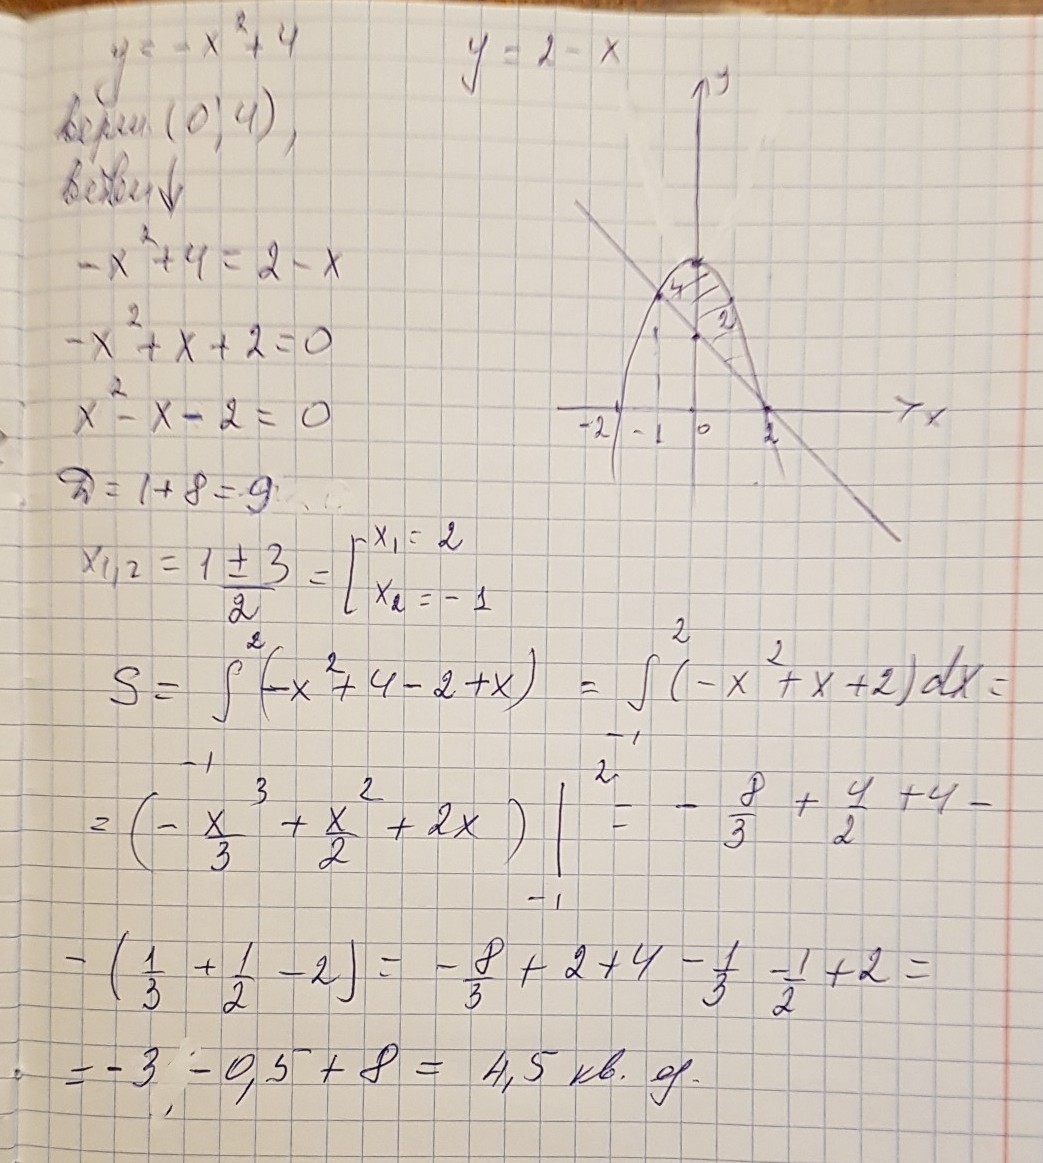 y = -x² + 4
y = 2 - x
верш (0; 4),
ветви ↓
-x² + 4 = 2 - x
-x² + x + 2 = 0
x² - x - 2 = 0
D = 1 + 8 = 9
x₁,₂ = (1 ± 3)/2 = [ x₁ = 2
x₂ = -1
y
4
2
-2 -1 0 2 x
S = ∫₋₁² (-x² + 4 - 2 + x) = ∫₋₁² (-x² + x + 2) dx =
= (-x³/3 + x²/2 + 2x) |₋₁² = -8/3 + 4/2 + 4 -
- (1/3 + 1/2 - 2) = -8/3 + 2 + 4 - 1/3 - 1/2 + 2 =
= -3 - 0,5 + 8 = 4,5 кв. ед.